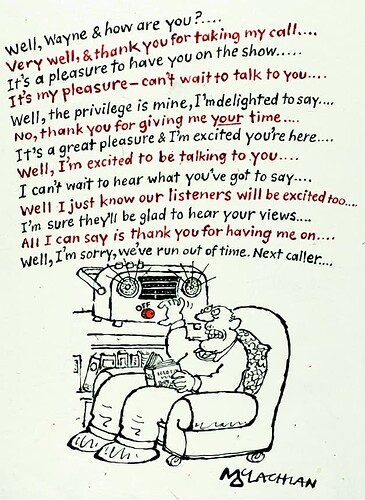 Well, Wayne & how are you?....
Very well, & thank you for taking my call....
It's a pleasure to have you on the show.....
It's my pleasure – can't wait to talk to you....
Well, the privilege is mine, I'm delighted to say....
No, thank you for giving me your time....
It's a great pleasure & I'm excited you're here....
Well, I'm excited to be talking to you....
I can't wait to hear what you've got to say....
Well I just know our listeners will be excited too....
I'm sure they'll be glad to hear your views....
All I can say is thank you for having me on....
Well, I'm sorry, we've run out of time. Next caller....
OFF
McLACHLAN